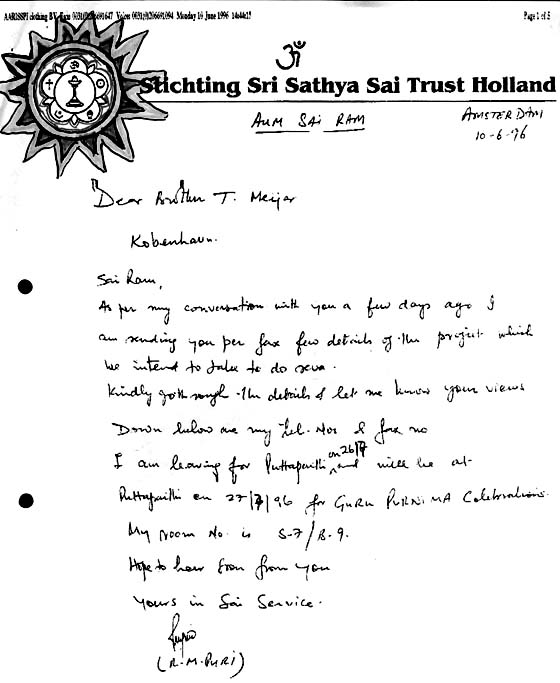 AARISSPI clothing B.V. Faxs 0031(0)206691647 Voices 0031(0)206691094 Monday 10 June 1996 14:44:15 Page 1 of 5
ॐ
Stichting Sri Sathya Sai Trust Holland
AUM SAI RAM
AMSTERDAM
10-6-96
Dear Brother T. Meijar
Kobenhavn.
Sai Ram,
As per my conversation with you a few days ago I
am sending you per fax few details of the project which
we intend to take to do seva.
Kindly go through the details & let me know your views
Down below are my Tel. Nos & fax no
I am leaving for Puttaparthi on 26/7 and will be at
Puttaparthi on 27/7/96 for GURU PURNIMA Celebrations.
My room No. is S-7/B-9.
Hope to hear soon from you
Yours in Sai Service.
(R.M. PURI)